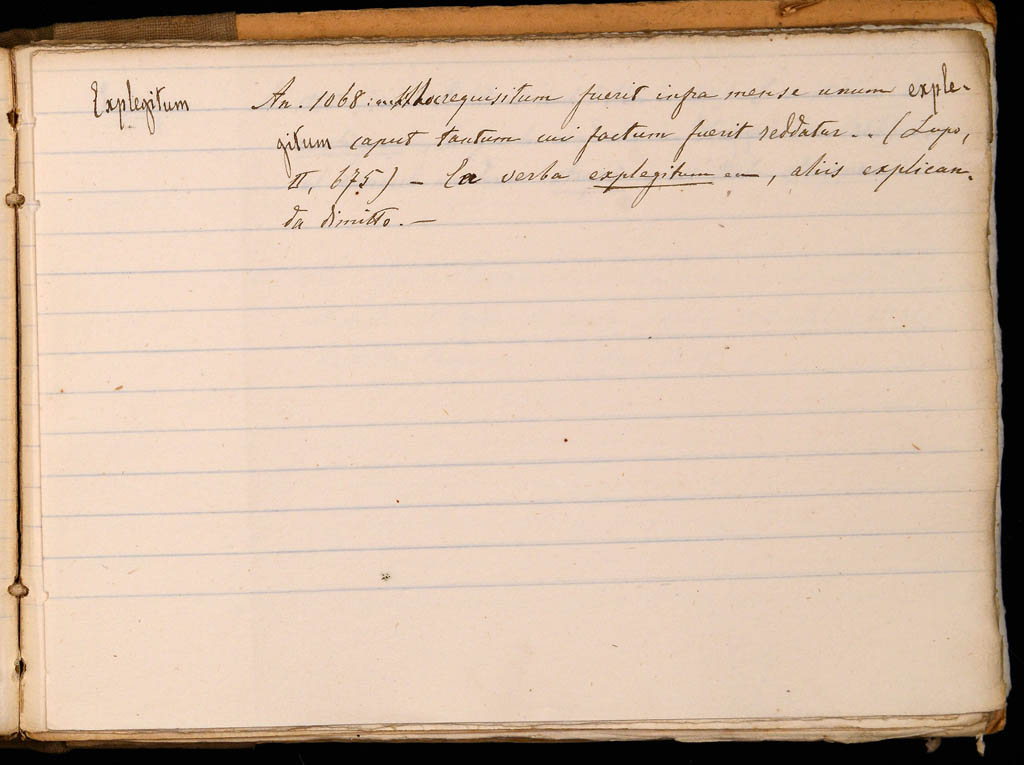 Explegitum An. 1068: requisitum fuerit infra mense unum exple-
gitum caput tantum cui factum fuerit reddatur.. (Lupo,
II, 675) — Ea verba explegitum , aliis explican-
da dimitto. —